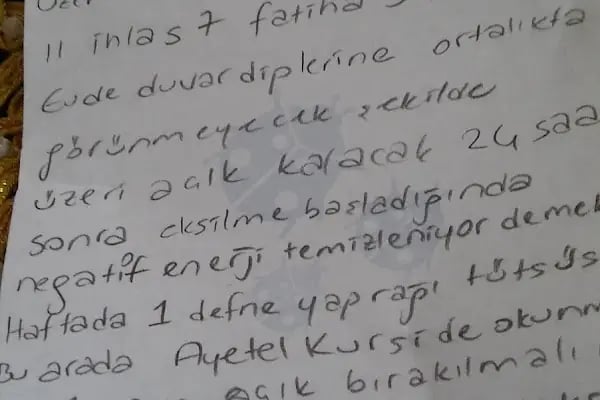 11 ihlas 7 fatiha
Evde duvar diplerine ortalıkta
görünmeyecek şekilde
üzeri açık kalacak 24 saa
sonra eksilme başladığında
negatif enerji temizleniyor demek
Haftada 1 defne yaprağı tütsüs
Bu arada Ayetel Kursi de okunm
açık bırakılmalı